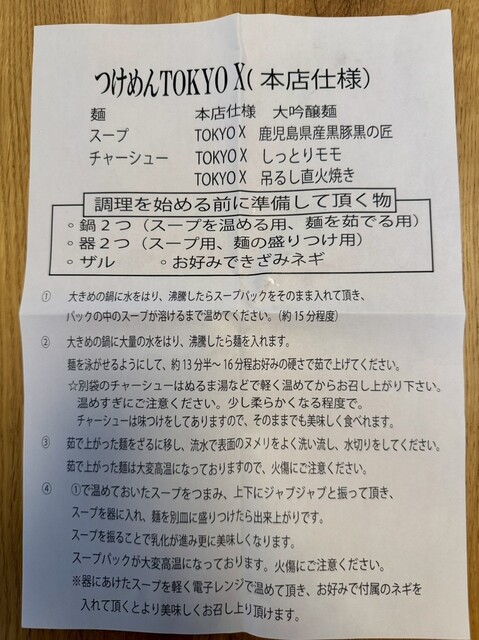 つけめんTOKYO X(本店仕様)
麺 本店仕様 大吟醸麺
スープ TOKYO X 鹿児島県産黒豚黒の匠
チャーシュー TOKYO X しっとりモモ
TOKYO X 吊るし直火焼き
調理を始める前に準備して頂く物
◦鍋２つ（スープを温める用、麺を茹でる用）
◦器２つ（スープ用、麺の盛りつけ用）
◦ザル ◦お好みできざみネギ
① 大きめの鍋に水をはり、沸騰したらスープパックをそのまま入れて頂き、
パックの中のスープが溶けるまで温めてください。（約15分程度）
② 大きめの鍋に大量の水をはり、沸騰したら麺を入れます。
麺を泳がせるようにして、約13分半〜16分程お好みの硬さで茹で上げてください。
☆別袋のチャーシューはぬるま湯などで軽く温めてからお召し上がり下さい。
温めすぎにご注意ください。少し柔らかくなる程度で。
チャーシューは味つけをしてありますので、そのままでも美味しく食べれます。
③ 茹で上がった麺をざるに移し、流水で表面のヌメリをよく洗い流し、水切りをしてください。
茹で上がった麺は大変高温になっておりますので、火傷にご注意ください。
④ ①で温めておいたスープをつまみ、上下にジャブジャブと振って頂き、
スープを器に入れ、麺を別皿に盛りつけたら出来上がりです。
スープを振ることで乳化が進み更に美味しくなります。
スープパックが大変高温になっております。火傷にご注意ください。
※器にあけたスープを軽く電子レンジで温めて頂き、お好みで付属のネギを
入れて頂くとより美味しくお召し上り頂けます。